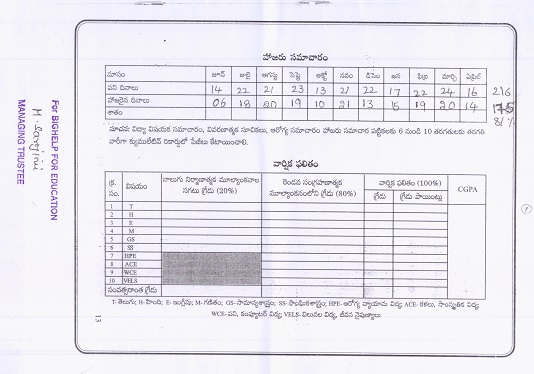 హాజరు సమాచారం
మాసం జూన్ జులై ఆగస్టు సెప్టె అక్టో నవం డిసెం జన ఫిబ్ర మార్చి ఏప్రిల్
పని దినాలు 14 22 21 23 13 21 22 17 22 24 16 216
హాజరైన దినాలు 06 18 20 19 10 21 13 15 19 20 14 175
శాతం 81%
సూచన: విద్యా విషయక సమాచారం, వివరణాత్మక సూచికలు, ఆరోగ్య సమాచారం హాజరు సమాచార పట్టికలకు 6 నుండి 10 తరగతులకు తరగతి
వారీగా క్యుములేటివ్ రికార్డులో పేజీలు కేటాయించాలి.
వార్షిక ఫలితం
క్ర. సం. విషయం నాలుగు నిర్మాణాత్మక మూల్యాంకనాల సగటు గ్రేడు (20%) రెండవ సంగ్రహణాత్మక మూల్యాంకనంలోని గ్రేడు (80%) వార్షిక ఫలితం (100%) CGPA
గ్రేడు గ్రేడు పాయింట్లు
1 T
2 H
3 E
4 M
5 GS
6 SS
7 HPE
8 ACE
9 WCE
10 VELS
సంవత్సరాంత గ్రేడు
T-తెలుగు; H-హింది; E-ఇంగ్లీషు; M-గణితం; GS-సామాన్యశాస్త్రం; SS-సాంఘికశాస్త్రం; HPE-ఆరోగ్య వ్యాయామ విద్య; ACE-కళలు, సాంస్కృతిక విద్య;
WCE-పని, కంప్యూటర్ విద్య; VELS-విలువల విద్య, జీవన నైపుణ్యాలు
13
For BIGHELP FOR EDUCATION
MANAGING TRUSTEE